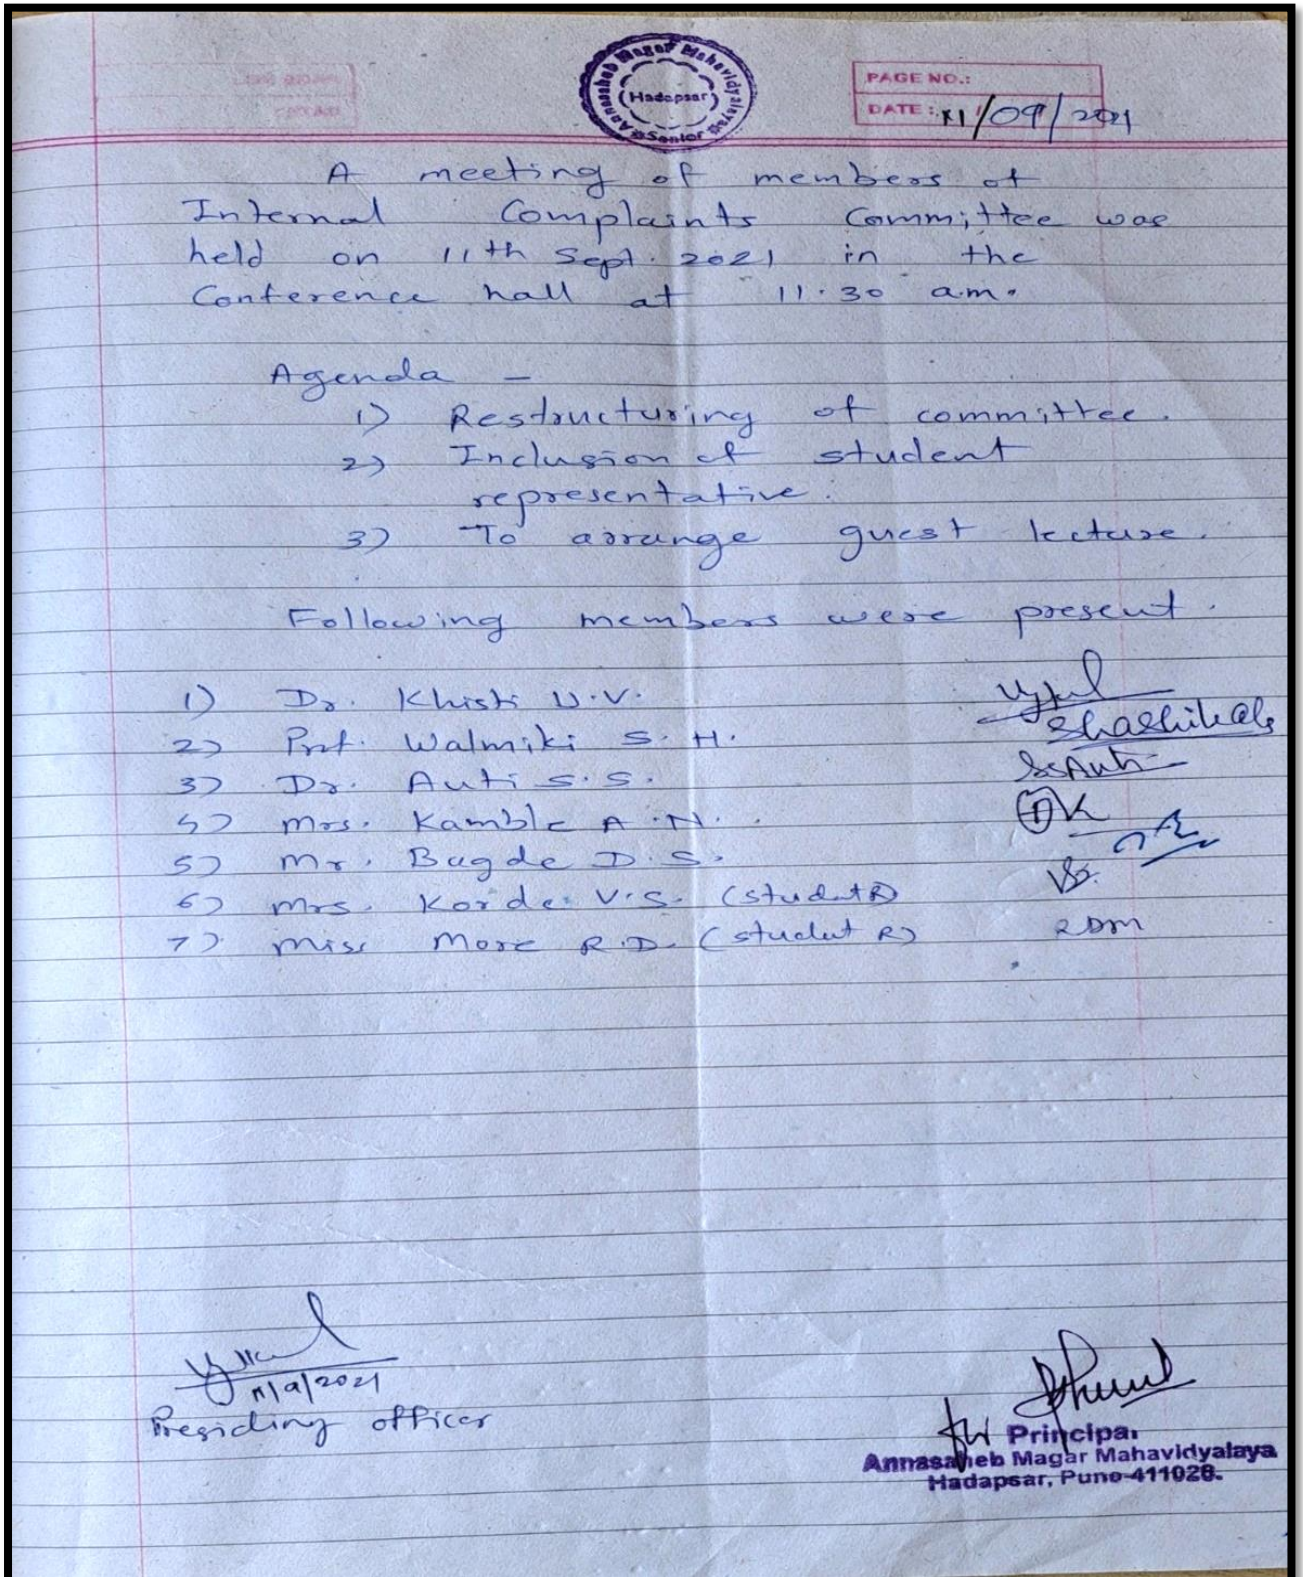 Annasaheb Magar Mahavidyalaya
Hadapsar
Senior
PAGE NO.:
DATE: 11/09/2021
A meeting of members of
Internal Complaints Committee was
held on 11th Sept. 2021 in the
Conference hall at 11.30 a.m.
Agenda -
1) Restructuring of committee.
2) Inclusion of student
representative.
3) To arrange guest lecture.
Following members were present.
1) Dr. Khisti U.V.
2) Prof. Walmiki S.H. Shashikala
3) Dr. Auti S.S. SsAuti
4) Mrs. Kamble A.N. AK
5) Mr. Bagde D.S.
6) Mrs. Korde V.S. (student R)
7) Miss More R.D. (student R) RDM
11/9/2021
Presiding officer
for Principal
Annasaheb Magar Mahavidyalaya
Hadapsar, Pune-411028.